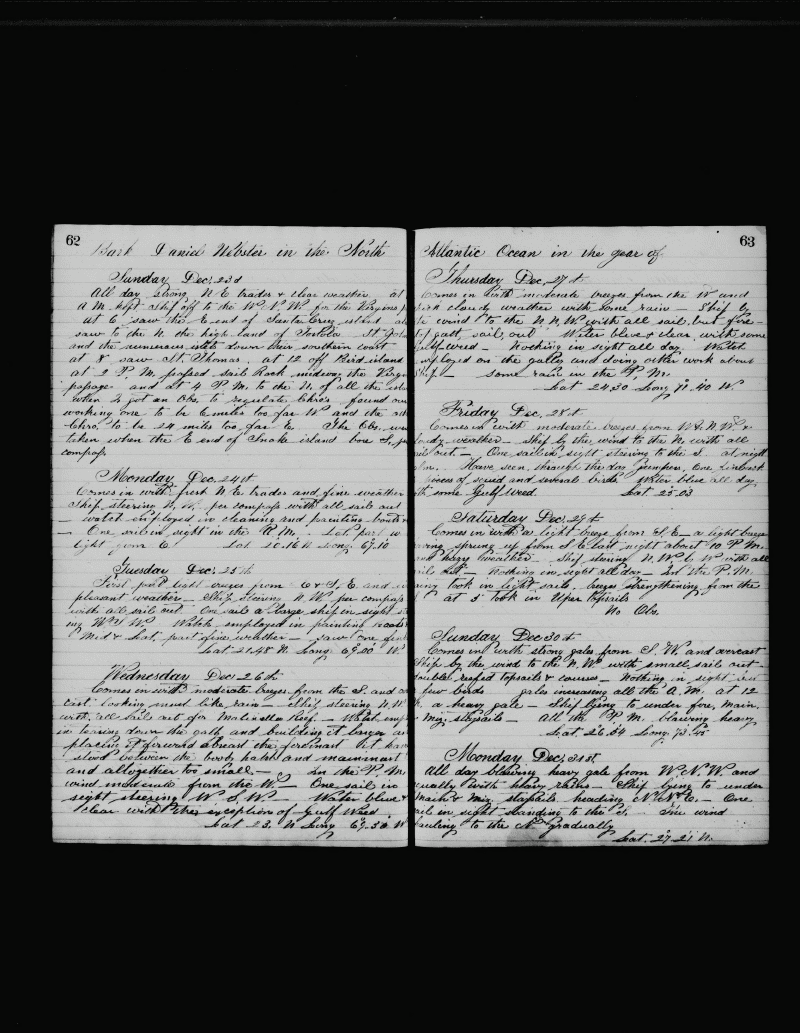 62
Bark Daniel Webster in the North
Sunday Dec, 23d
All day strong N E trades & clear weather at
A M. kept ship off to the W N. W. for the Virgins
at 6 saw the E end of Santa Cruz island
saw to the N. the high land of Tortola St. John
and the numerous islets down their southern coast
at 8 saw St. Thomas. at 12 off Bird island
at 2 P M. passed sail Rock midway the Virgin
passage and at 4 P M. to the N. of all the
when I got an Obs to regulate Chro's. found our
working one to be 6 miles too far W and the
Chro, to be 24 miles too far E. The Obs. was
taken when the E end of Snake island bore S, per
compass
Monday Dec, 24th
Comes in with fresh N E. trades and fine weather
Ship steering N, W, per compass with all sail out
watch employed in cleaning and painting boats
One sail in sight in the A. M. Lat. part
light from E Lat 20.16 N Long. 67.10
Tuesday Dec, 25th
First part light breezes from E & S, E. and
pleasant weather Ship steering N. W. per compass
with all sail out One sail a large ship in sight
W. Watch employed in painting boats
Mid & Lat, part fine weather saw one
Lat. 21.48 N Long. 69.00 W
Wednesday Dec 26th
Comes in with moderate breezes from the S. and
cast looking much like rain Ship steering N. W
with all sail out for Matinella Reef. Watch
in tearing down the gally and building it larger
placing it forward abreast the foremast It
stood between the booby hatch and mainmast
and altogether too small In the P. M.
wind moderate from the W. One sail in
sight steering W. S. W. Water blue &
clear with the exception of Gulf Weed
Lat 23, N Long 69.30 W
63
Atlantic Ocean in the year of
Thursday Dec, 27th
Comes in with moderate breezes from the W and
cloudy weather with some rain Ship by
wind to the N. N. W. with all sail but fore-
gall, sail out Water blue & clear with some
gulf weed Nothing in sight all day. Watch
employed on the gally and doing other work about
ship. some rain in the P, M.
Lat 24.30 Long 71.40 W
Friday Dec, 28th
Comes in with moderate breezes from W. N. W. &
cloudy weather ship by the wind to the N. with all
sail out One sail in sight steering to the S. at night
Have seen through the day Jumpers, One Finback
pieces of scud and several birds Water blue all day
some Gulf Weed. Lat 25.03
Saturday Dec, 29th
Comes in with a light breeze from S. E. a light breeze
sprung up from S E last night about 10 P M.
hazy weather Ship steering N. W. by W with all
sail out Nothing in sight all day In the P. M.
took in light sails, breeze strengthening from the
at 5 took in Uper topsails
No Obs.
Sunday Dec 30th
Comes in with strong gales from S. W. and overcast
Ship by the wind to the N. W. with small sails out
double reefed topsails & courses Nothing in sight but
few birds gales increasing all the A. M. at 12
a heavy gale Ship lying to under fore, main,
Miz. staysails All the P M. blowing heavy
Lat 26.54 Long 73.
Monday Dec, 31st
All day blowing heavy gale from W. N. W. and
squally with heavy rains Ship lying to under
main & Miz. staysails heading N. N. E. One
sail in sight standing to the S. The wind
hauling to the N. gradually
Lat. 27.21 N.